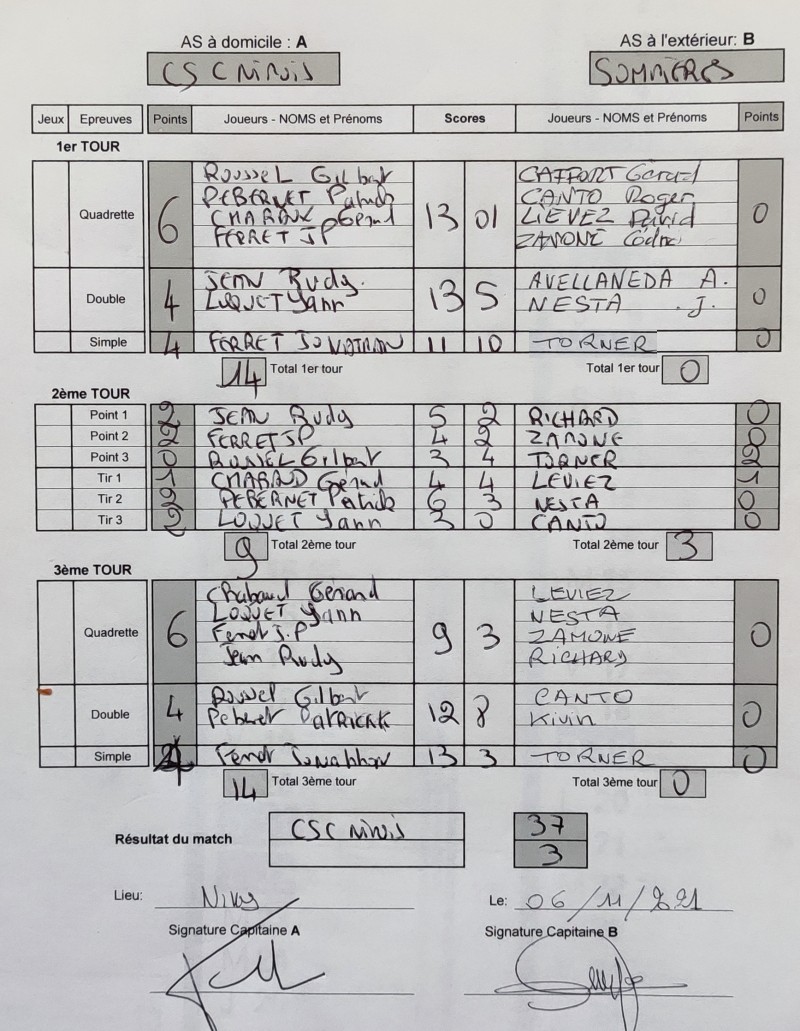 AS à domicile : A AS à l'extérieur: B
CSC NIMIS SOMMIERES
Jeux Epreuves Points Joueurs - NOMS et Prénoms Scores Joueurs - NOMS et Prénoms Points
1er TOUR
Quadrette 6 13 01 0
ROUSSEL Gilbert CAFFORT Gérard
PEBERNET Patrick CANTO Roger
Gérard LIEVEZ David
FERRET JP ZAMONE Cédric
Double 4 13 5 0
JEAN Rudy. AVELLANEDA A.
LOQUET Yann NESTA . J.
Simple 4 FERRET JONATHAN 11 10 TORNER 0
14 Total 1er tour Total 1er tour 0
2ème TOUR
Point 1 2 JEAN Rudy 5 2 RICHARD 0
Point 2 2 FERRET JP 4 2 ZAMONE 0
Point 3 0 ROUSSEL Gilbert 3 4 TORNER 2
Tir 1 1 CHABAUD Gérard 4 4 LEVIEZ 1
Tir 2 2 PEBERNET Patrick 6 3 NESTA 0
Tir 3 2 LOQUET Yann 3 0 CANTO 0
9 Total 2ème tour Total 2ème tour 3
3ème TOUR
Quadrette 6 9 3 0
Chabaud Gérard LEVIEZ
LOQUET Yann NESTA
Ferret J.P ZAMONE
Jean Rudy RICHARD
Double 4 12 8 0
Roussel Gilbert CANTO
Pebernet PATRICK Kivin
Simple 4 Ferret Jonathan 13 3 TORNER 0
14 Total 3ème tour Total 3ème tour 0
Résultat du match CSC NIMIS 37
3
Lieu: Le: 06/11/2021
Signature Capitaine A Signature Capitaine B